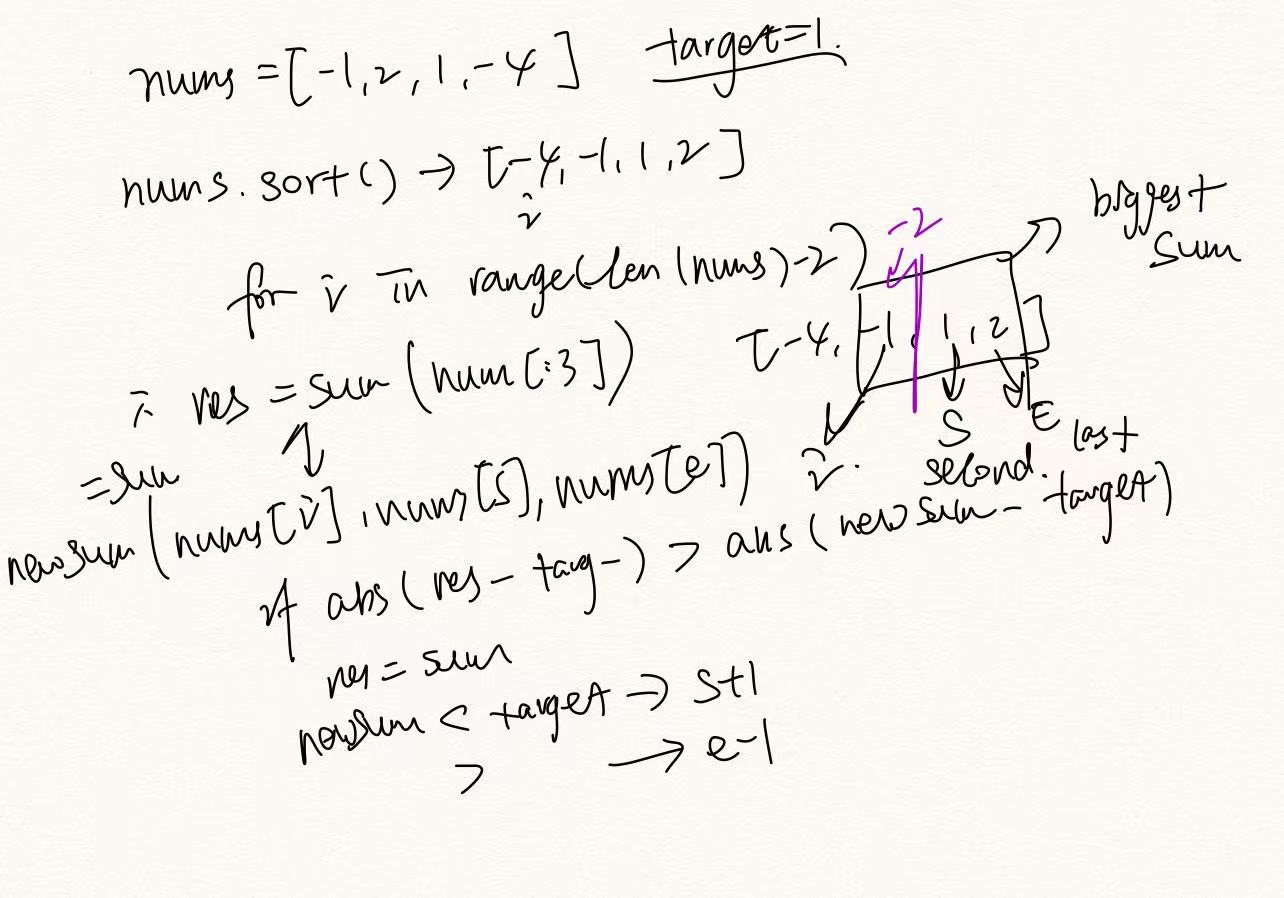 nums = [-1, 2, 1, -4] target=1.
nums.sort() → [-4, -1, 1, 2]
i
for i in range(len(nums)-2)
-2
biggest
sum
[-4, -1, 1, 2]
res = sum(num[:3])
i.
S
second.
E
last
=sum
newsum(nums[i], nums[s], nums[e])
if abs(res - targ-) > abs(newsum - target)
res = sum
newsum < target → s+1
> → e-1